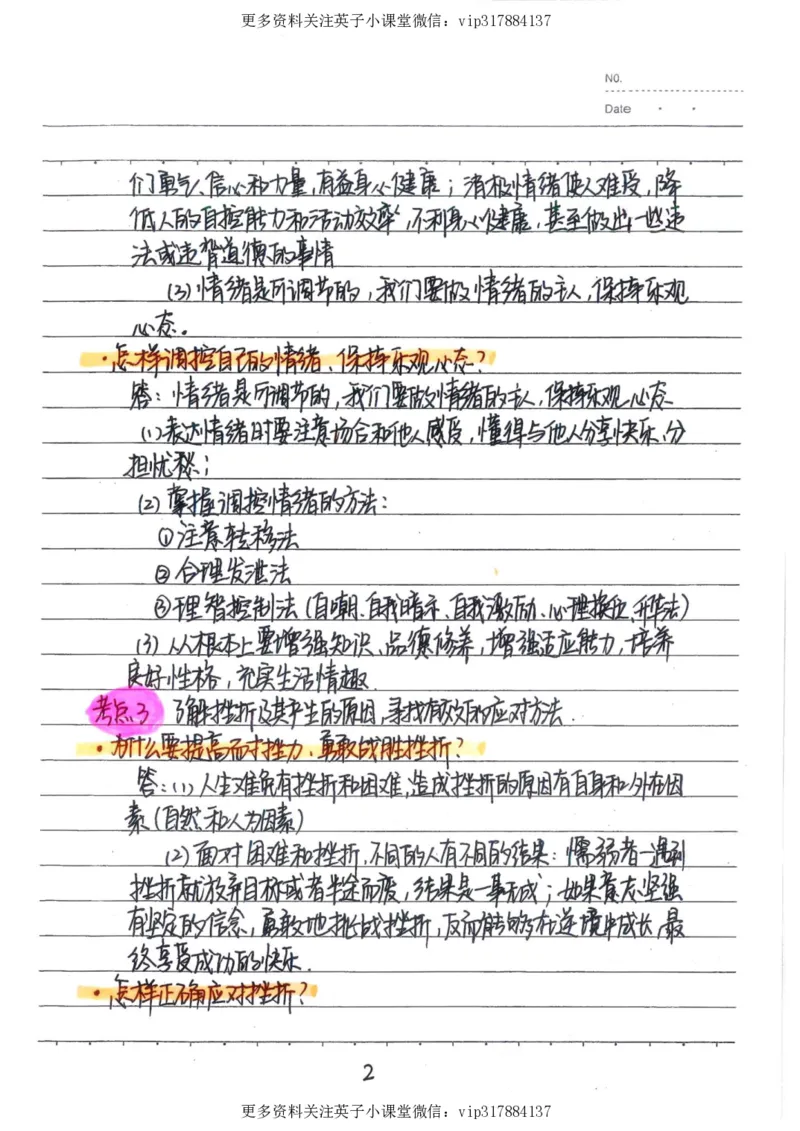 更多资料关注英子小课堂微信：vip317884137
NO.
Date
们勇气、信心和力量,有益身心健康；消极情绪使人难受,降
低人的自控能力和活动效率,不利身心健康,甚至做出一些违
法或违背道德的事情
(3)情绪是可调节的,我们要做情绪的主人,保持乐观
心态。
·怎样调控自己的情绪、保持乐观心态?
答:情绪是可调节的,我们要做情绪的主人,保持乐观心态
(1)表达情绪时要注意场合和他人感受,懂得与他人分享快乐、分
担忧愁；
(2)掌握调控情绪的方法：
①注意转移法
②合理发泄法
③理智控制法(自嘲、自我暗示、自我激励、心理换位、升华法)
(3)从根本上要增强知识、品德修养,增强适应能力,培养
良好性格,充实生活情趣.
考点3 了解挫折及其产生的原因,寻找有效的应对方法.
·为什么要提高耐挫力、勇敢战胜挫折?
答:(1)人生难免有挫折和困难,造成挫折的原因有自身和外在因
素(自然和人为因素)
(2)面对困难和挫折,不同的人有不同的结果：懦弱者一遇到
挫折就放弃目标或者半途而废,结果是一事无成；如果意志坚强
有坚定的信念,勇敢地挑战挫折,反而能够在逆境中成长,最
终享受成功的快乐.
·怎样正确应对挫折?
2
更多资料关注英子小课堂微信：vip317884137